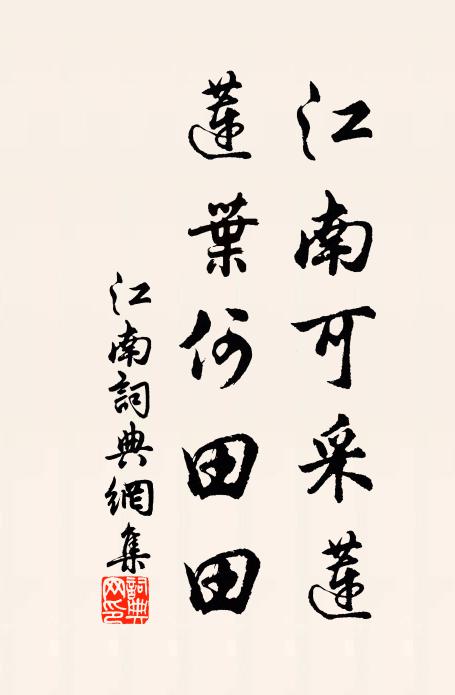 江南可采蓮
蓮葉何田田
江南詞典網集
詞典網印